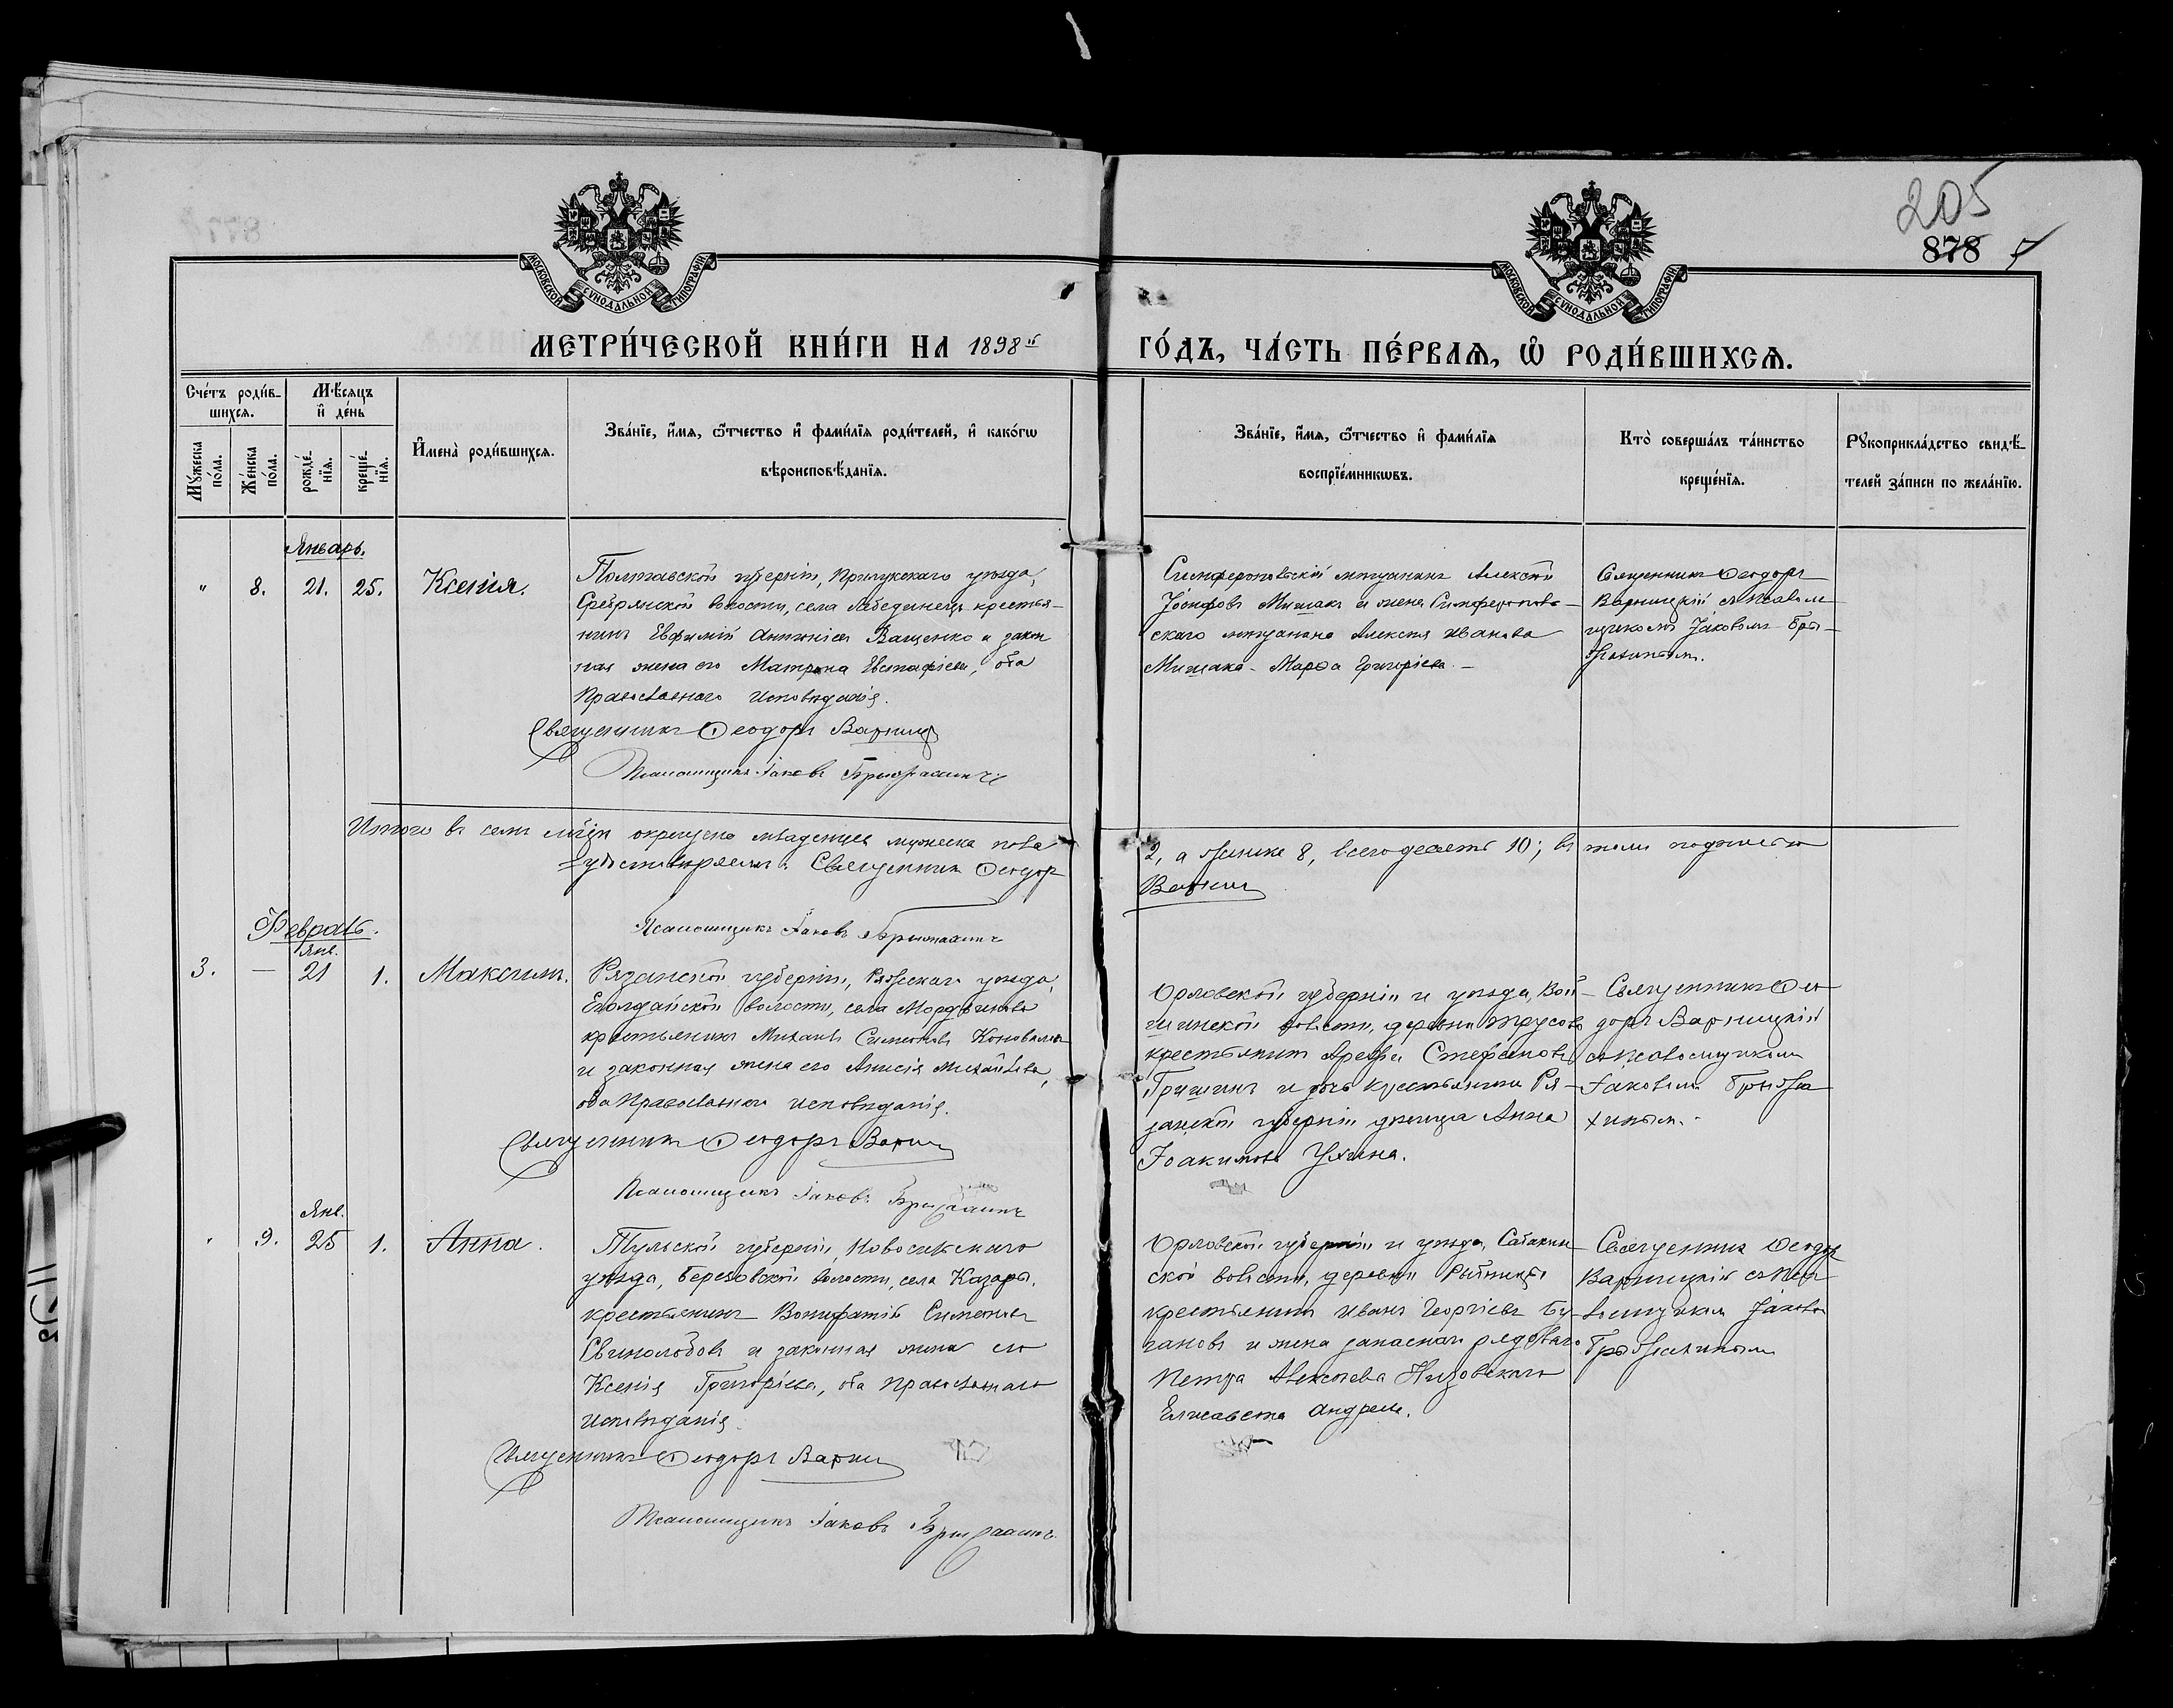 205
878
МОСКОВСКОЙ СѴНОДАЛЬНОЙ ТИПОГРАФІИ
МОСКОВСКОЙ СѴНОДАЛЬНОЙ ТИПОГРАФІИ
МЕТРИ́ЧЕСКОЙ КНИ́ГИ НА 1898й
ГО́ДЪ, ЧА́СТЬ ПЕ́РВАЯ, Ѡ РОДИ́ВШИХСЯ.
Сче́тъ роди́в-
шихся.
Мꙋ́жеска по́ла.
Же́нска по́ла.
Мѣ́сяцъ
и҆ де́нь
рожде́-нїя.
креще́-нїя.
И҆мена̀ роди́вшихся.
Зва́нїе, и҆́мя, ѻ҆́тчество и҆ фами́лїя роди́телей, и҆ како́гѡ
вѣроисповѣ́данїя.
Зва́нїе, и҆́мя, ѻ҆́тчество и҆ фами́лїя
воспрїе́мникѡвъ.
Кто̀ соверша́лъ та́инство
креще́нїя.
Рꙋкоприкла́дство свидѣ́-
телей за́писи по жела́нїю.
Январь.
" 8. 21. 25. Ксенія.
Полтавской губерніи, Прилукскаго уѣзда,
Сребрянской волости, села Лебединецъ крестья-
нинъ Евфимій Ващенко и закон
ная жена его Матрона Евстафіева, оба
Православнаго Исповѣданія.
Священникъ Ѳеодоръ Варниц
Псаломщикъ Іаковъ
Симферопольскій мѣщанинъ Алексѣй
Іосифовъ Мишакъ и жена Симферополь-
скаго мѣщанина Алексѣя Иванова
Мишака - Марѳа Григоріева. -
Священникъ Ѳеодоръ
Варницкій съ Псалом
щикомъ Іаковомъ
Итого въ семъ мѣсяцѣ окрещено младенцевъ мужеска пола
2, а женска 8, всего десять 10; въ томъ подписью
удостовѣряемъ: Священникъ Ѳеодоръ
Варниц
Псаломщикъ Іаковъ
Февраль.
Янв.
3. — 21 1. Максимъ.
Рязанской губерніи, Ряжскаго уѣзда,
Еголдайской волости, села Мордвинова
крестьянинъ Михаилъ Симеоновъ Коновалов
и законная жена его Анисія Михайлова,
оба Православнаго исповѣданія.
Священникъ Ѳеодоръ Варниц
Псаломщикъ Іаковъ
Орловской губерніи и уѣзда,
волости, деревни Трусово
крестьянинъ Арефа Стефановъ
Гришинъ и дочь крестьянина Ря-
занской губерніи дѣвица Анна
Іоакимова Ухина.
Священникъ Ѳео
доръ Варницкій
съ Псаломщикомъ
Іаковомъ
Янв.
" 9. 25 1. Анна.
Тульской губерніи, Новосильскаго
уѣзда, Березовской волости, села Казарь,
крестьянинъ Вонифатій Симеоновъ
Свинолобовъ и законная жена его
Ксенія Григоріева, оба Православнаго
исповѣданія.
Священникъ Ѳеодоръ Варниц
Псаломщикъ Іаковъ
Орловской губерніи и уѣзда, Сабакин-
ской волости, деревни
крестьянинъ Иванъ Георгіевъ Бу-
гановъ и жена запаснаго рядоваго
Петра Алексѣева Низовскаго
Елисавета Андреева.
Священникъ Ѳеодоръ
Варницкій съ Пса-
ломщикомъ Іаковом